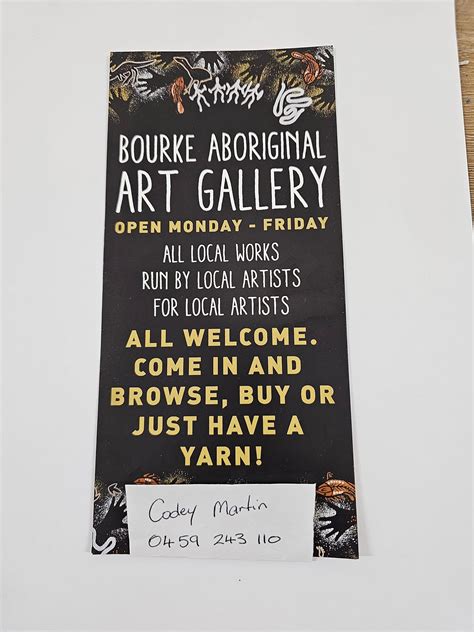 BOURKE ABORIGINAL
ART GALLERY
OPEN MONDAY - FRIDAY
ALL LOCAL WORKS
RUN BY LOCAL ARTISTS
FOR LOCAL ARTISTS
ALL WELCOME.
COME IN AND
BROWSE, BUY OR
JUST HAVE A
YARN!
Codey Martin
0459 243 110